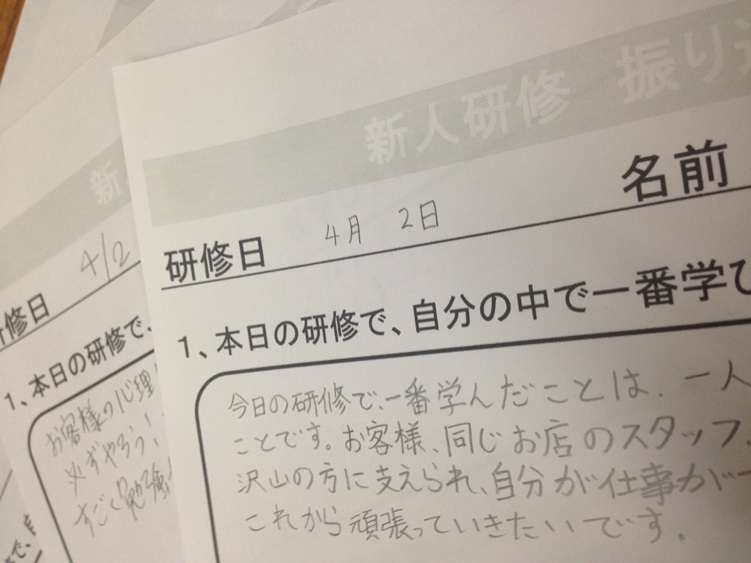 新人研修 振り
名前
研修日 4月 2日
1、本日の研修で、自分の中で一番学び
今日の研修で、一番学んだことは、一人
ことです。お客様、同じお店のスタッフ、
沢山の方に支えられ、自分が仕事が
これから頑張っていきたいです。
新
修日 4/2
1、本日の研修で、
お客様の心理
必ずやろう!
すごく勉強